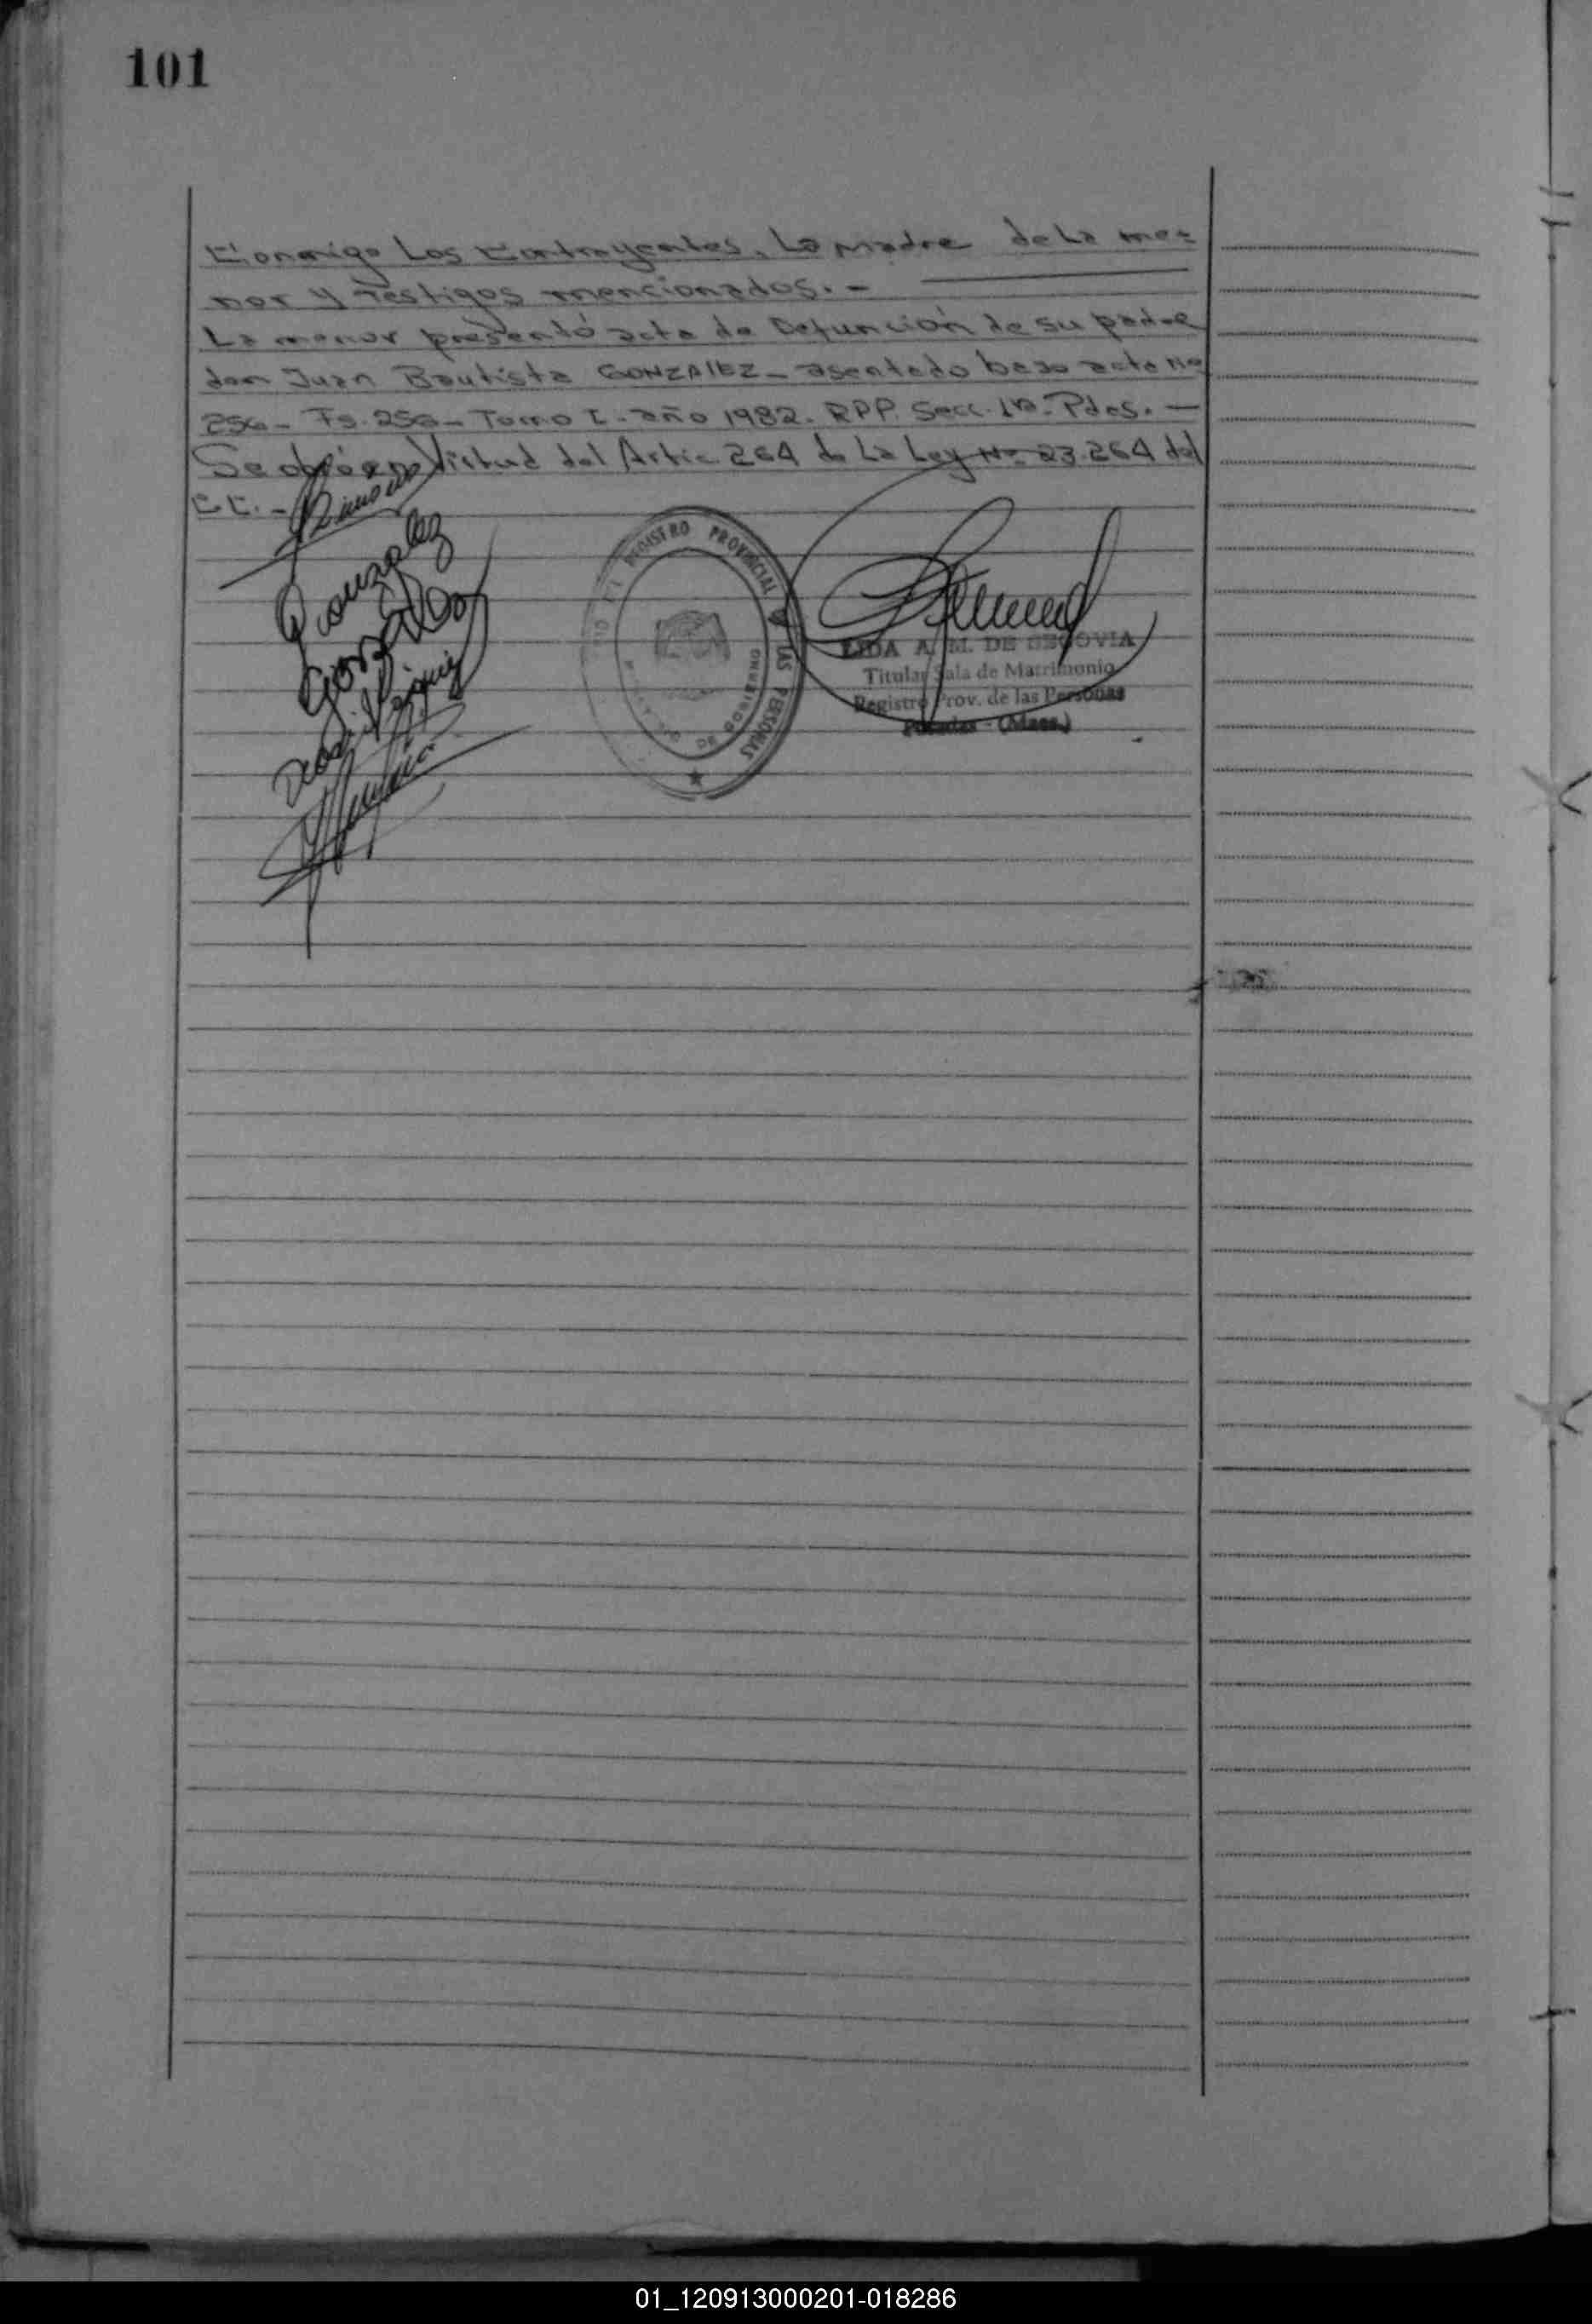 101
Conmigo Los Contrayentes, La Madre de La me=
nor y Testigos mencionados. -
La menor presentó acta de Defunción de su padre
don Juan Bautista GONZALEZ - asentado bajo acta Nº
256 - Fs. 256 - Tomo I - año 1982. RPP. Secc. 1ª - Pdas. -
Se obró en Virtud del Artic. 264 de La Ley Nº 23.264 del
C.C. -
Gonzalez
REGISTRO PROVINCIAL LAS PERSONAS
DE GOBIERNO
LIDA A. M. DE SEGOVIA
Titular Sala de Matrimonio
Registro Prov. de las Personas
Posadas - (Mnes.)
01_120913000201-018286